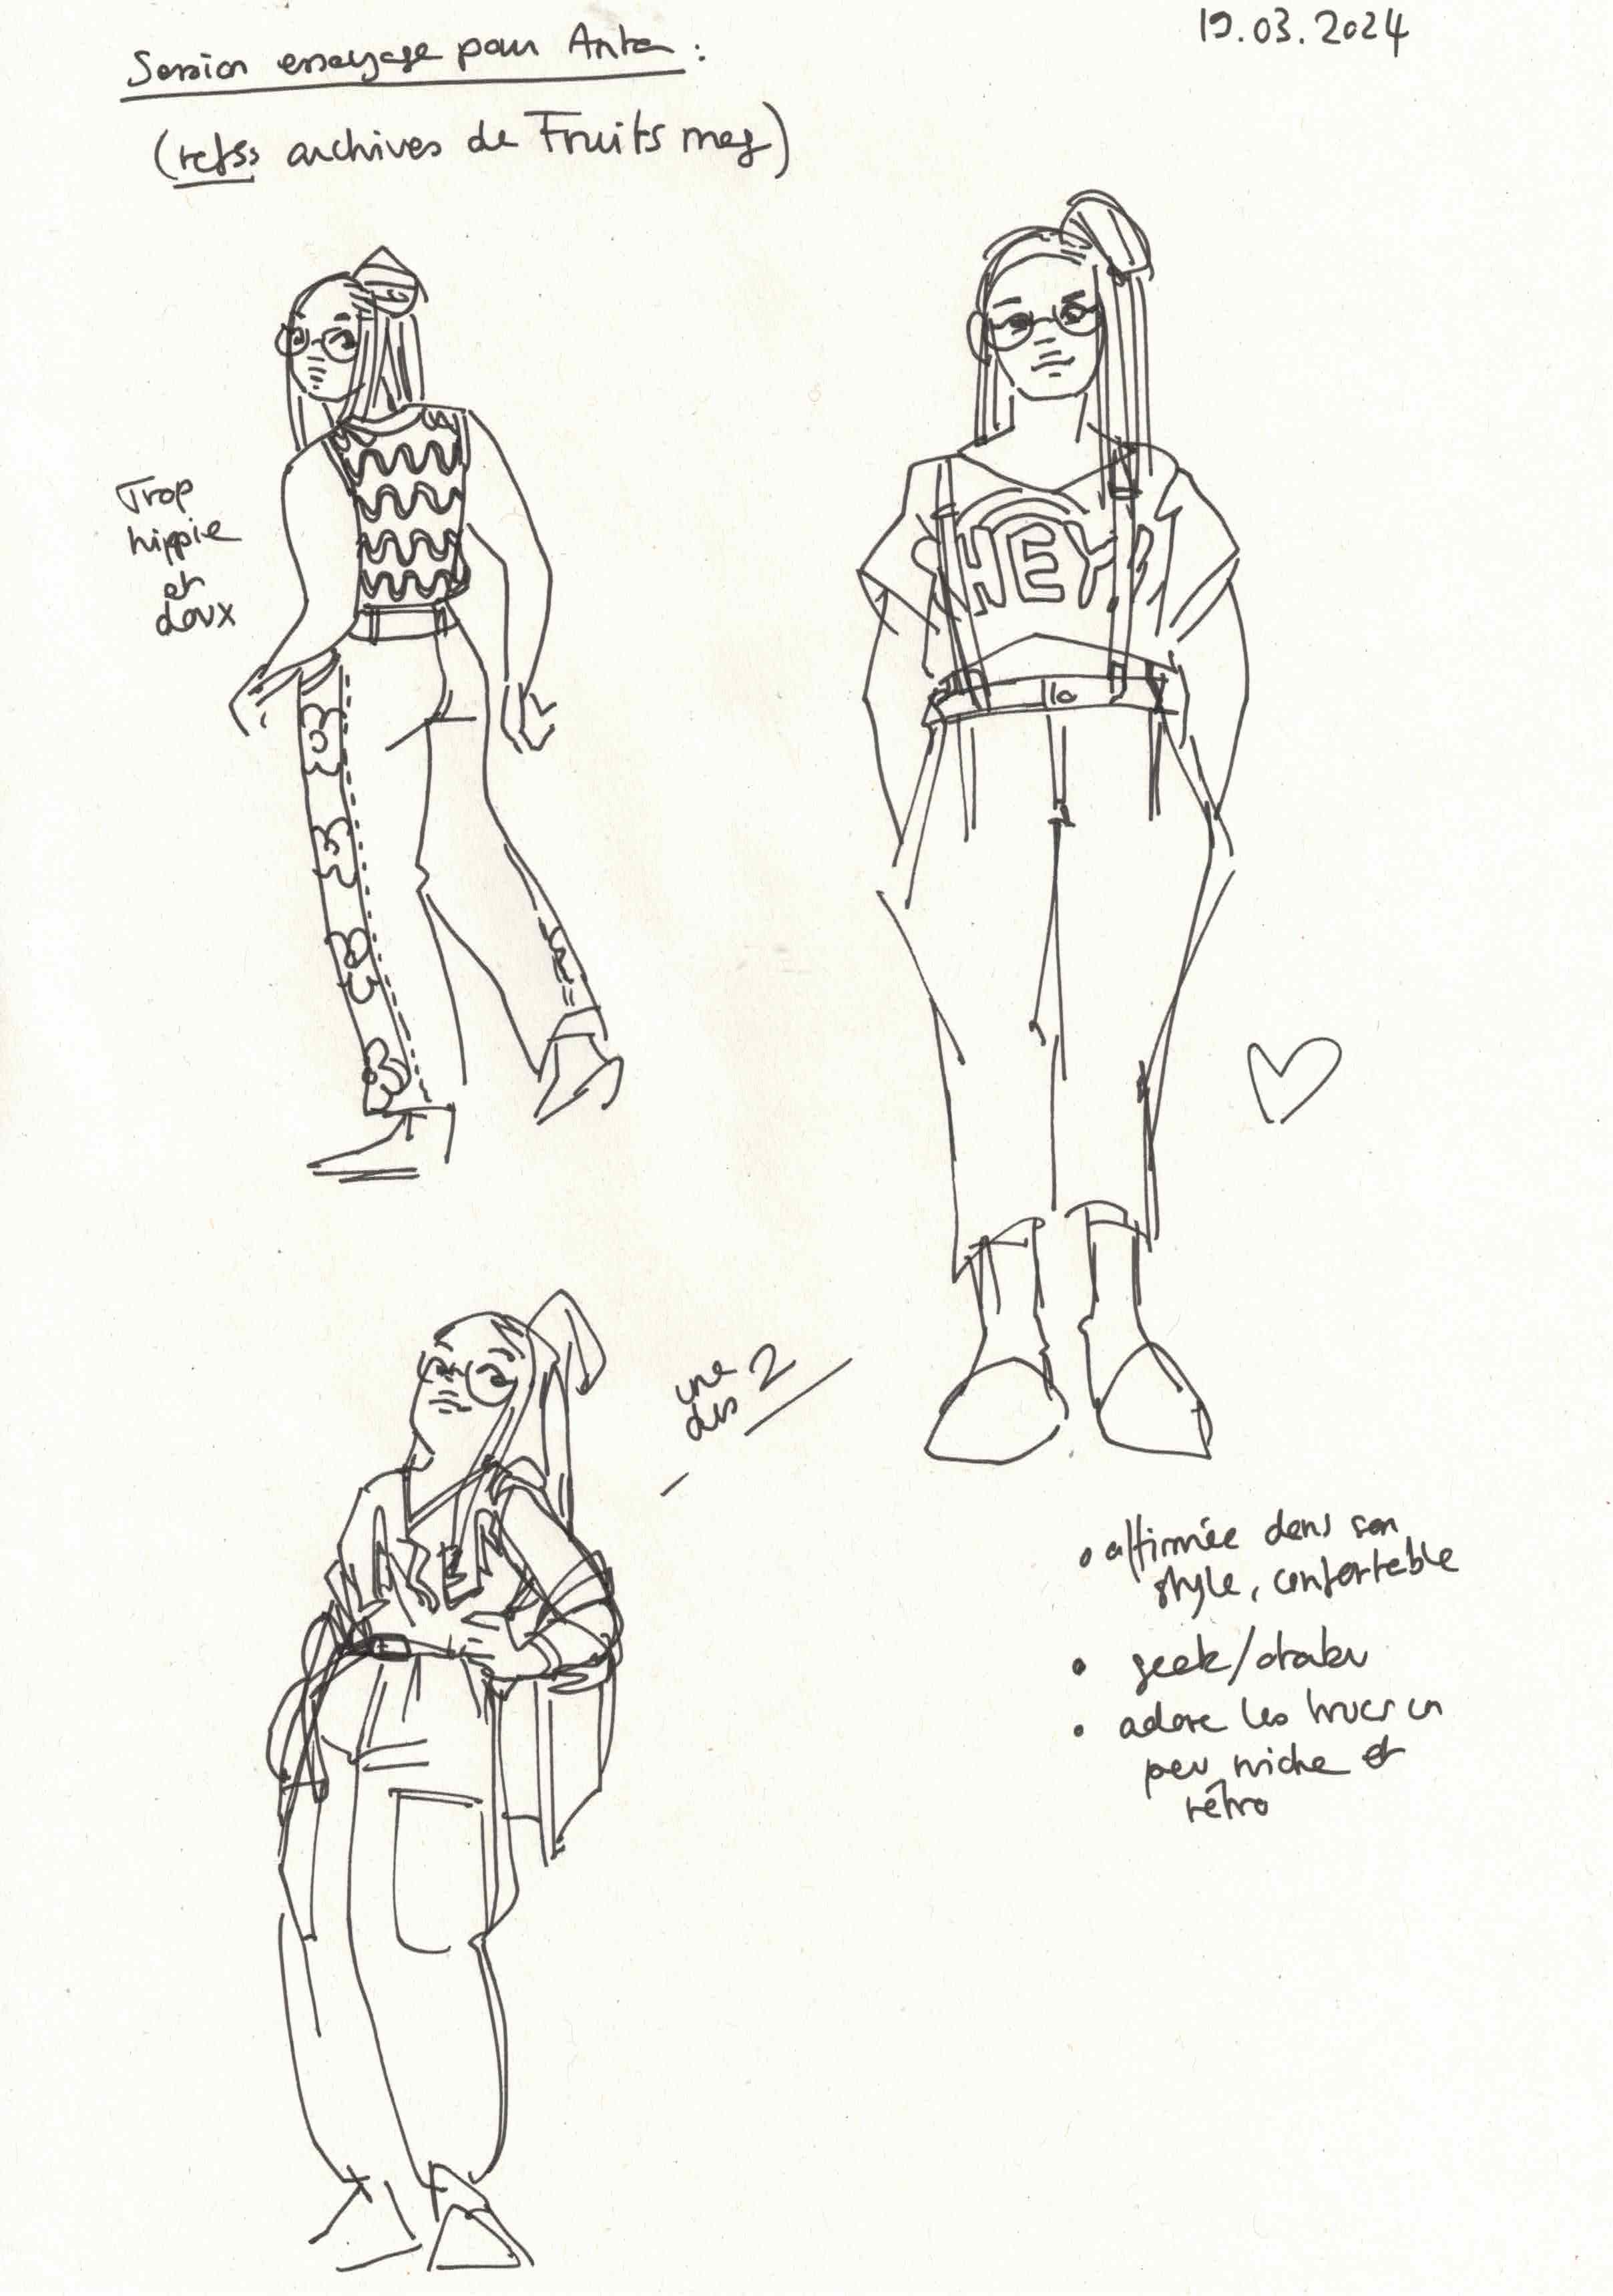 19.03.2024
Session essayage pour Anta :
(refss archives de Fruits mag)
Trop
hippie
et
doux
HEY
une
des 2
• affirmée dans son
style, confortable
• geek/otaku
• adore les trucs un
peu niche et
rétro